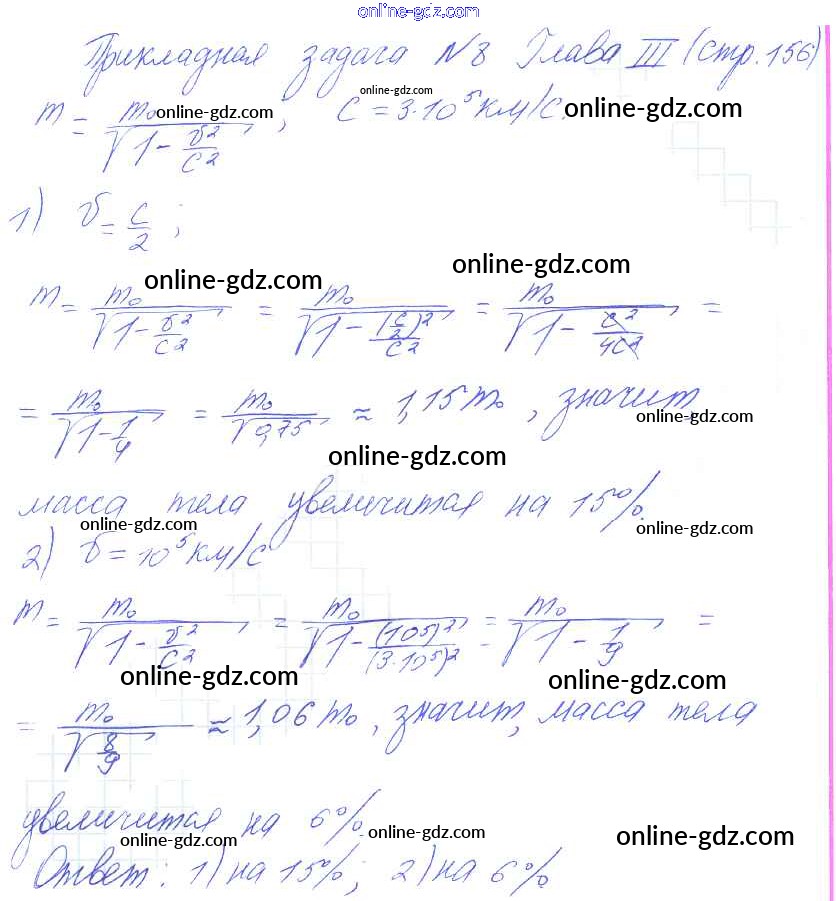 online-gdz.com
Прикладная задача №8 Глава III (стр. 156)
online-gdz.com
m = m₀/√(1 - υ²/c²); c = 3·10⁵ км/с.
online-gdz.com online-gdz.com
1) υ = c/2;
online-gdz.com online-gdz.com
m = m₀/√(1 - υ²/c²) = m₀/√(1 - (c/2)²/c²) = m₀/√(1 - c²/4c²) =
= m₀/√(1 - 1/4) = m₀/√0,75 ≈ 1,15 m₀, значит,
online-gdz.com
online-gdz.com
масса тела увеличится на 15%.
online-gdz.com online-gdz.com
2) υ = 10⁵ км/с
m = m₀/√(1 - υ²/c²) = m₀/√(1 - (10⁵)²/(3·10⁵)²) = m₀/√(1 - 1/9) =
online-gdz.com online-gdz.com
= m₀/√(8/9) ≈ 1,06 m₀, значит, масса тела
увеличится на 6%.
online-gdz.com online-gdz.com online-gdz.com
Ответ: 1) на 15%; 2) на 6%